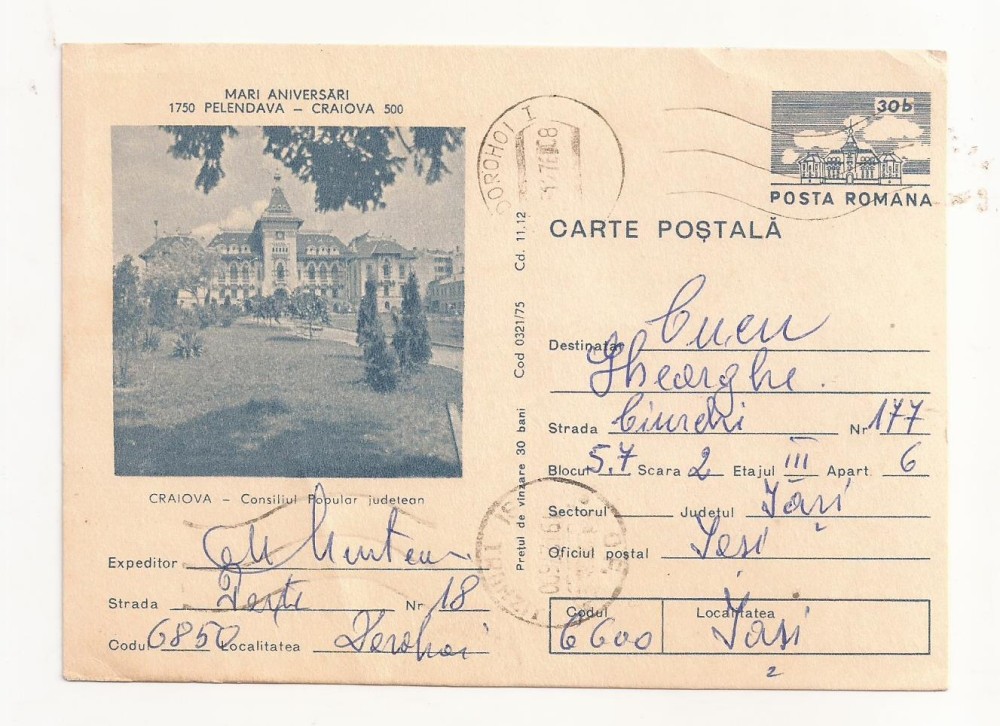 MARI ANIVERSĂRI
1750 PELENDAVA – CRAIOVA 500
CRAIOVA – Consiliul Popular județean
Expeditor Munteanu
Strada Nr 18
Codul 6850 Localitatea Dorohoi
Prețul de vînzare 30 bani Cod 0321/75 Cd. 11.12
DOROHOI 1
30 b
POSTA ROMANA
CARTE POȘTALĂ
Destinatar Cucu
Gheorghe
Strada Ciurchi Nr 177
Blocul 5.7 Scara 2 Etajul III Apart. 6
Sectorul Județul Iași
Oficiul poștal Iași
Codul 6600 Localitatea Iași
2